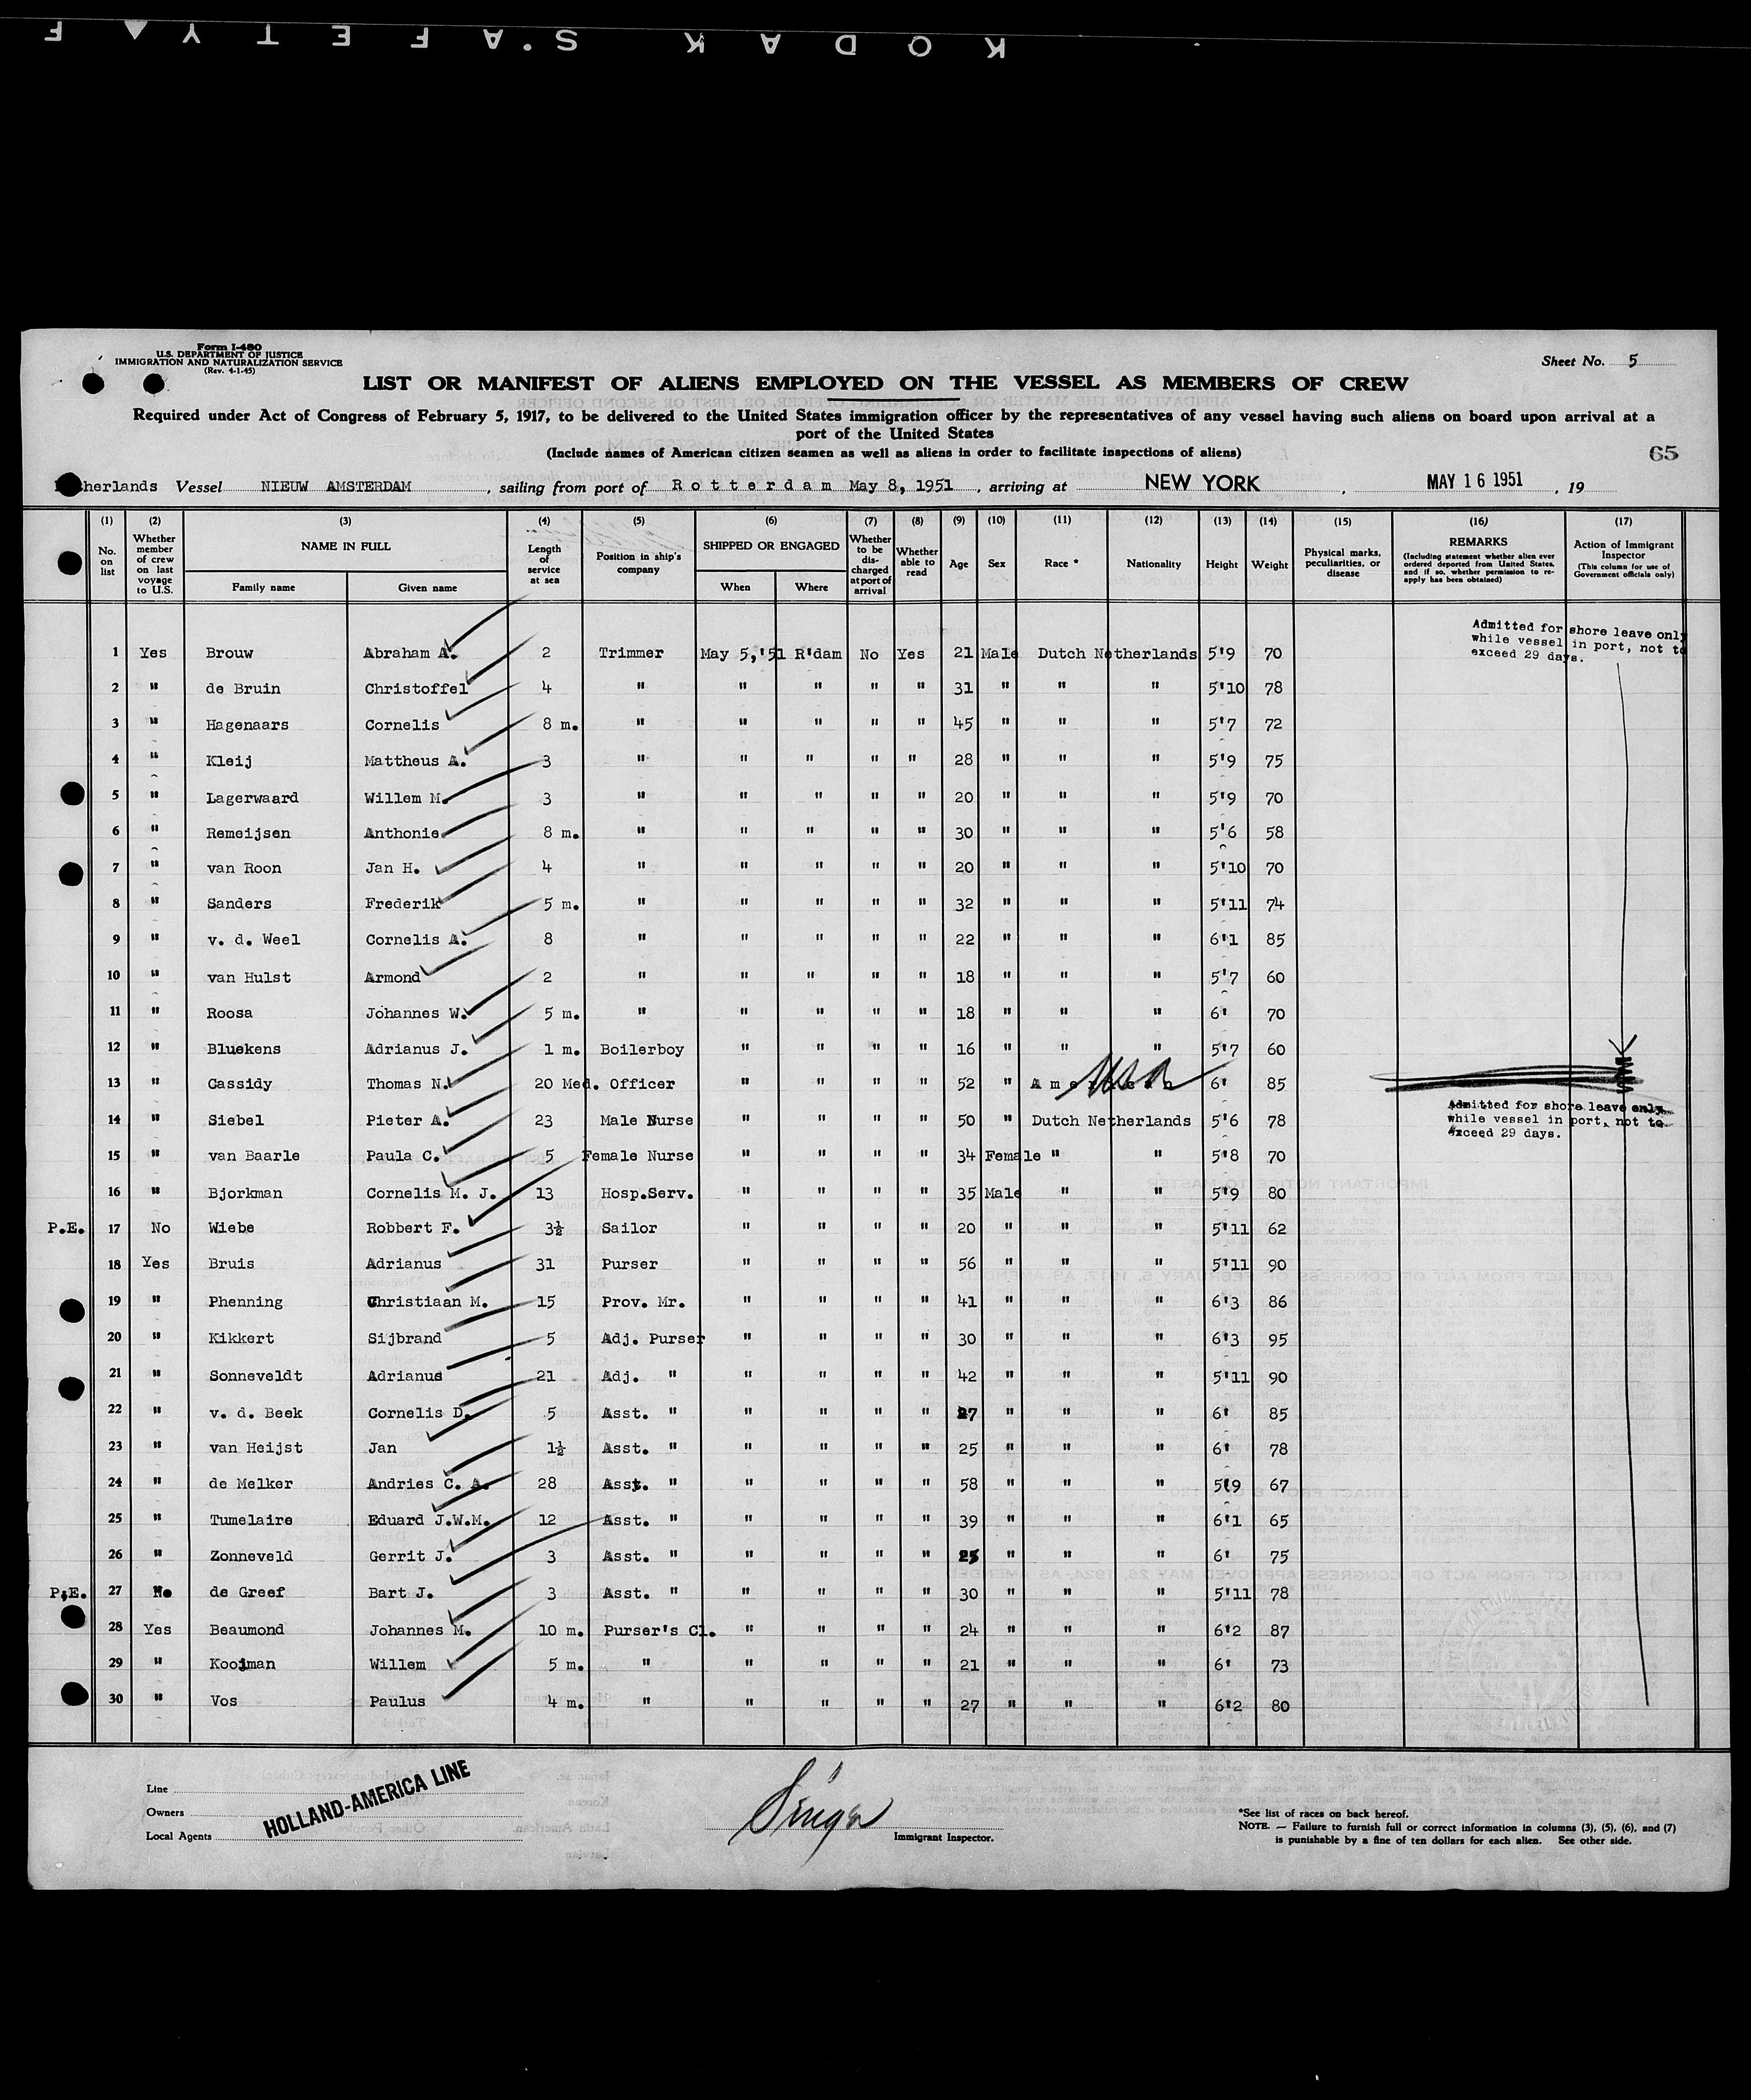 KODAK SAFETY F
Form I-480
U.S. DEPARTMENT OF JUSTICE
IMMIGRATION AND NATURALIZATION SERVICE
(Rev. 4-1-45)
Sheet No. 5
LIST OR MANIFEST OF ALIENS EMPLOYED ON THE VESSEL AS MEMBERS OF CREW
Required under Act of Congress of February 5, 1917, to be delivered to the United States immigration officer by the representatives of any vessel having such aliens on board upon arrival at a
port of the United States
(Include names of American citizen seamen as well as aliens in order to facilitate inspections of aliens)
65
herlands Vessel NIEUW AMSTERDAM, sailing from port of Rotterdam May 8, 1951, arriving at NEW YORK, MAY 16 1951, 19
(1) (2) (3) (4) (5) (6) (7) (8) (9) (10) (11) (12) (13) (14) (15) (16) (17)
No. on list
Whether member of crew on last voyage to U.S.
NAME IN FULL
Family name Given name
Length of service at sea
Position in ship's company
SHIPPED OR ENGAGED
When Where
Whether to be discharged at port of arrival
Whether able to read
Age Sex Race * Nationality Height Weight
Physical marks, peculiarities, or disease
REMARKS
(Including statement whether alien ever ordered deported from United States, and if so, whether permission to re-apply has been obtained)
Action of Immigrant Inspector
(This column for use of Government officials only)
Admitted for shore leave only
while vessel in port, not to
exceed 29 days.
1 Yes Brouw Abraham A. 2 Trimmer May 5,'51 R'dam No Yes 21 Male Dutch Netherlands 5'9 70
2 " de Bruin Christoffel 4 " " " " " 31 " " " 5'10 78
3 " Hagenaars Cornelis 8 m. " " " " " 45 " " " 5'7 72
4 " Kleij Mattheus A. 3 " " " " " 28 " " " 5'9 75
5 " Lagerwaard Willem M. 3 " " " " " 20 " " " 5'9 70
6 " Remeijsen Anthonie 8 m. " " " " " 30 " " " 5'6 58
7 " van Roon Jan H. 4 " " " " " 20 " " " 5'10 70
8 " Sanders Frederik 5 m. " " " " " 32 " " " 5'11 74
9 " v. d. Weel Cornelis A. 8 " " " " " 22 " " " 6'1 85
10 " van Hulst Armond 2 " " " " " 18 " " " 5'7 60
11 " Roosa Johannes W. 5 m. " " " " " 18 " " " 6' 70
12 " Bluekens Adrianus J. 1 m. Boilerboy " " " " 16 " " " 5'7 60
13 " Cassidy Thomas N. 20 Med. Officer " " " " 52 " American USA 6' 85
Admitted for shore leave only
while vessel in port, not to
exceed 29 days.
14 " Siebel Pieter A. 23 Male Nurse " " " " 50 " Dutch Netherlands 5'6 78
15 " van Baarle Paula C. 5 Female Nurse " " " " 34 Female " " 5'8 70
16 " Bjorkman Cornelis M. J. 13 Hosp.Serv. " " " " 35 Male " " 5'9 80
P.E. 17 No Wiebe Robbert F. 3½ Sailor " " " " 20 " " " 5'11 62
18 Yes Bruis Adrianus 31 Purser " " " " 56 " " " 5'11 90
19 " Phenning Christiaan M. 15 Prov. Mr. " " " " 41 " " " 6'3 86
20 " Kikkert Sijbrand 5 Adj. Purser " " " " 30 " " " 6'3 95
21 " Sonneveldt Adrianus 21 Adj. " " " " " 42 " " " 5'11 90
22 " v. d. Beek Cornelis D. 5 Asst. " " " " " 27 " " " 6' 85
23 " van Heijst Jan 1½ Asst. " " " " " 25 " " " 6' 78
24 " de Melker Andries C. A. 28 Asst. " " " " " 58 " " " 5'9 67
25 " Tumelaire Eduard J.W.M. 12 Asst. " " " " " 39 " " " 6'1 65
26 " Zonneveld Gerrit J. 3 Asst. " " " " " 25 " " " 6' 75
P.E. 27 No de Greef Bart J. 3 Asst. " " " " " 30 " " " 5'11 78
28 Yes Beaumond Johannes M. 10 m. Purser's Cl. " " " " 24 " " " 6'2 87
29 " Kooiman Willem 5 m. " " " " " 21 " " " 6' 73
30 " Vos Paulus 4 m. " " " " " 27 " " " 6'2 80
Line
Owners
Local Agents
HOLLAND-AMERICA LINE
Immigrant Inspector.
*See list of races on back hereof.
NOTE. — Failure to furnish full or correct information in columns (3), (5), (6), and (7)
is punishable by a fine of ten dollars for each alien. See other side.